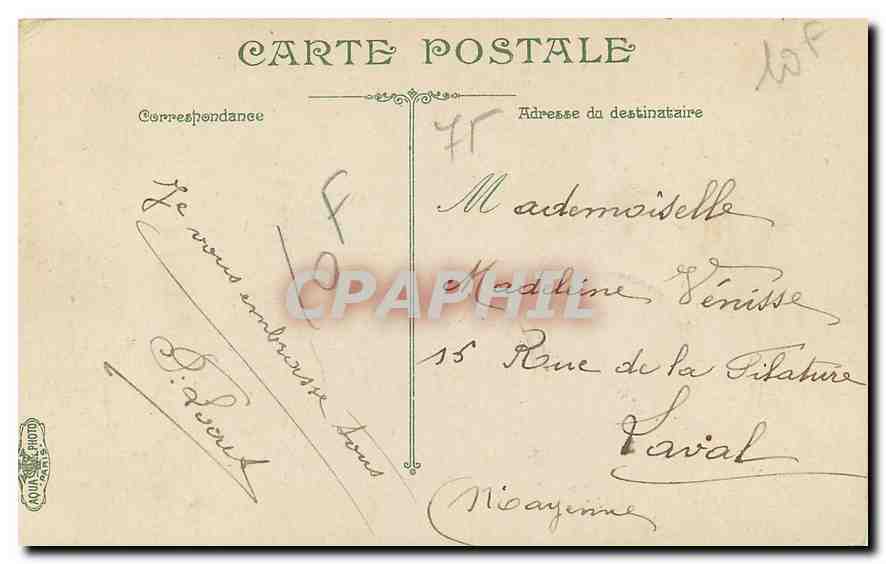 CARTE POSTALE
10F
Correspondance
Adresse du destinataire
75
Je vous embrasse tous
10F
Mademoiselle
Madeleine Vénisse
15 Rue de la Filature
Laval
Mayenne
CPAPHIL
AQUA PHOTO
PARIS